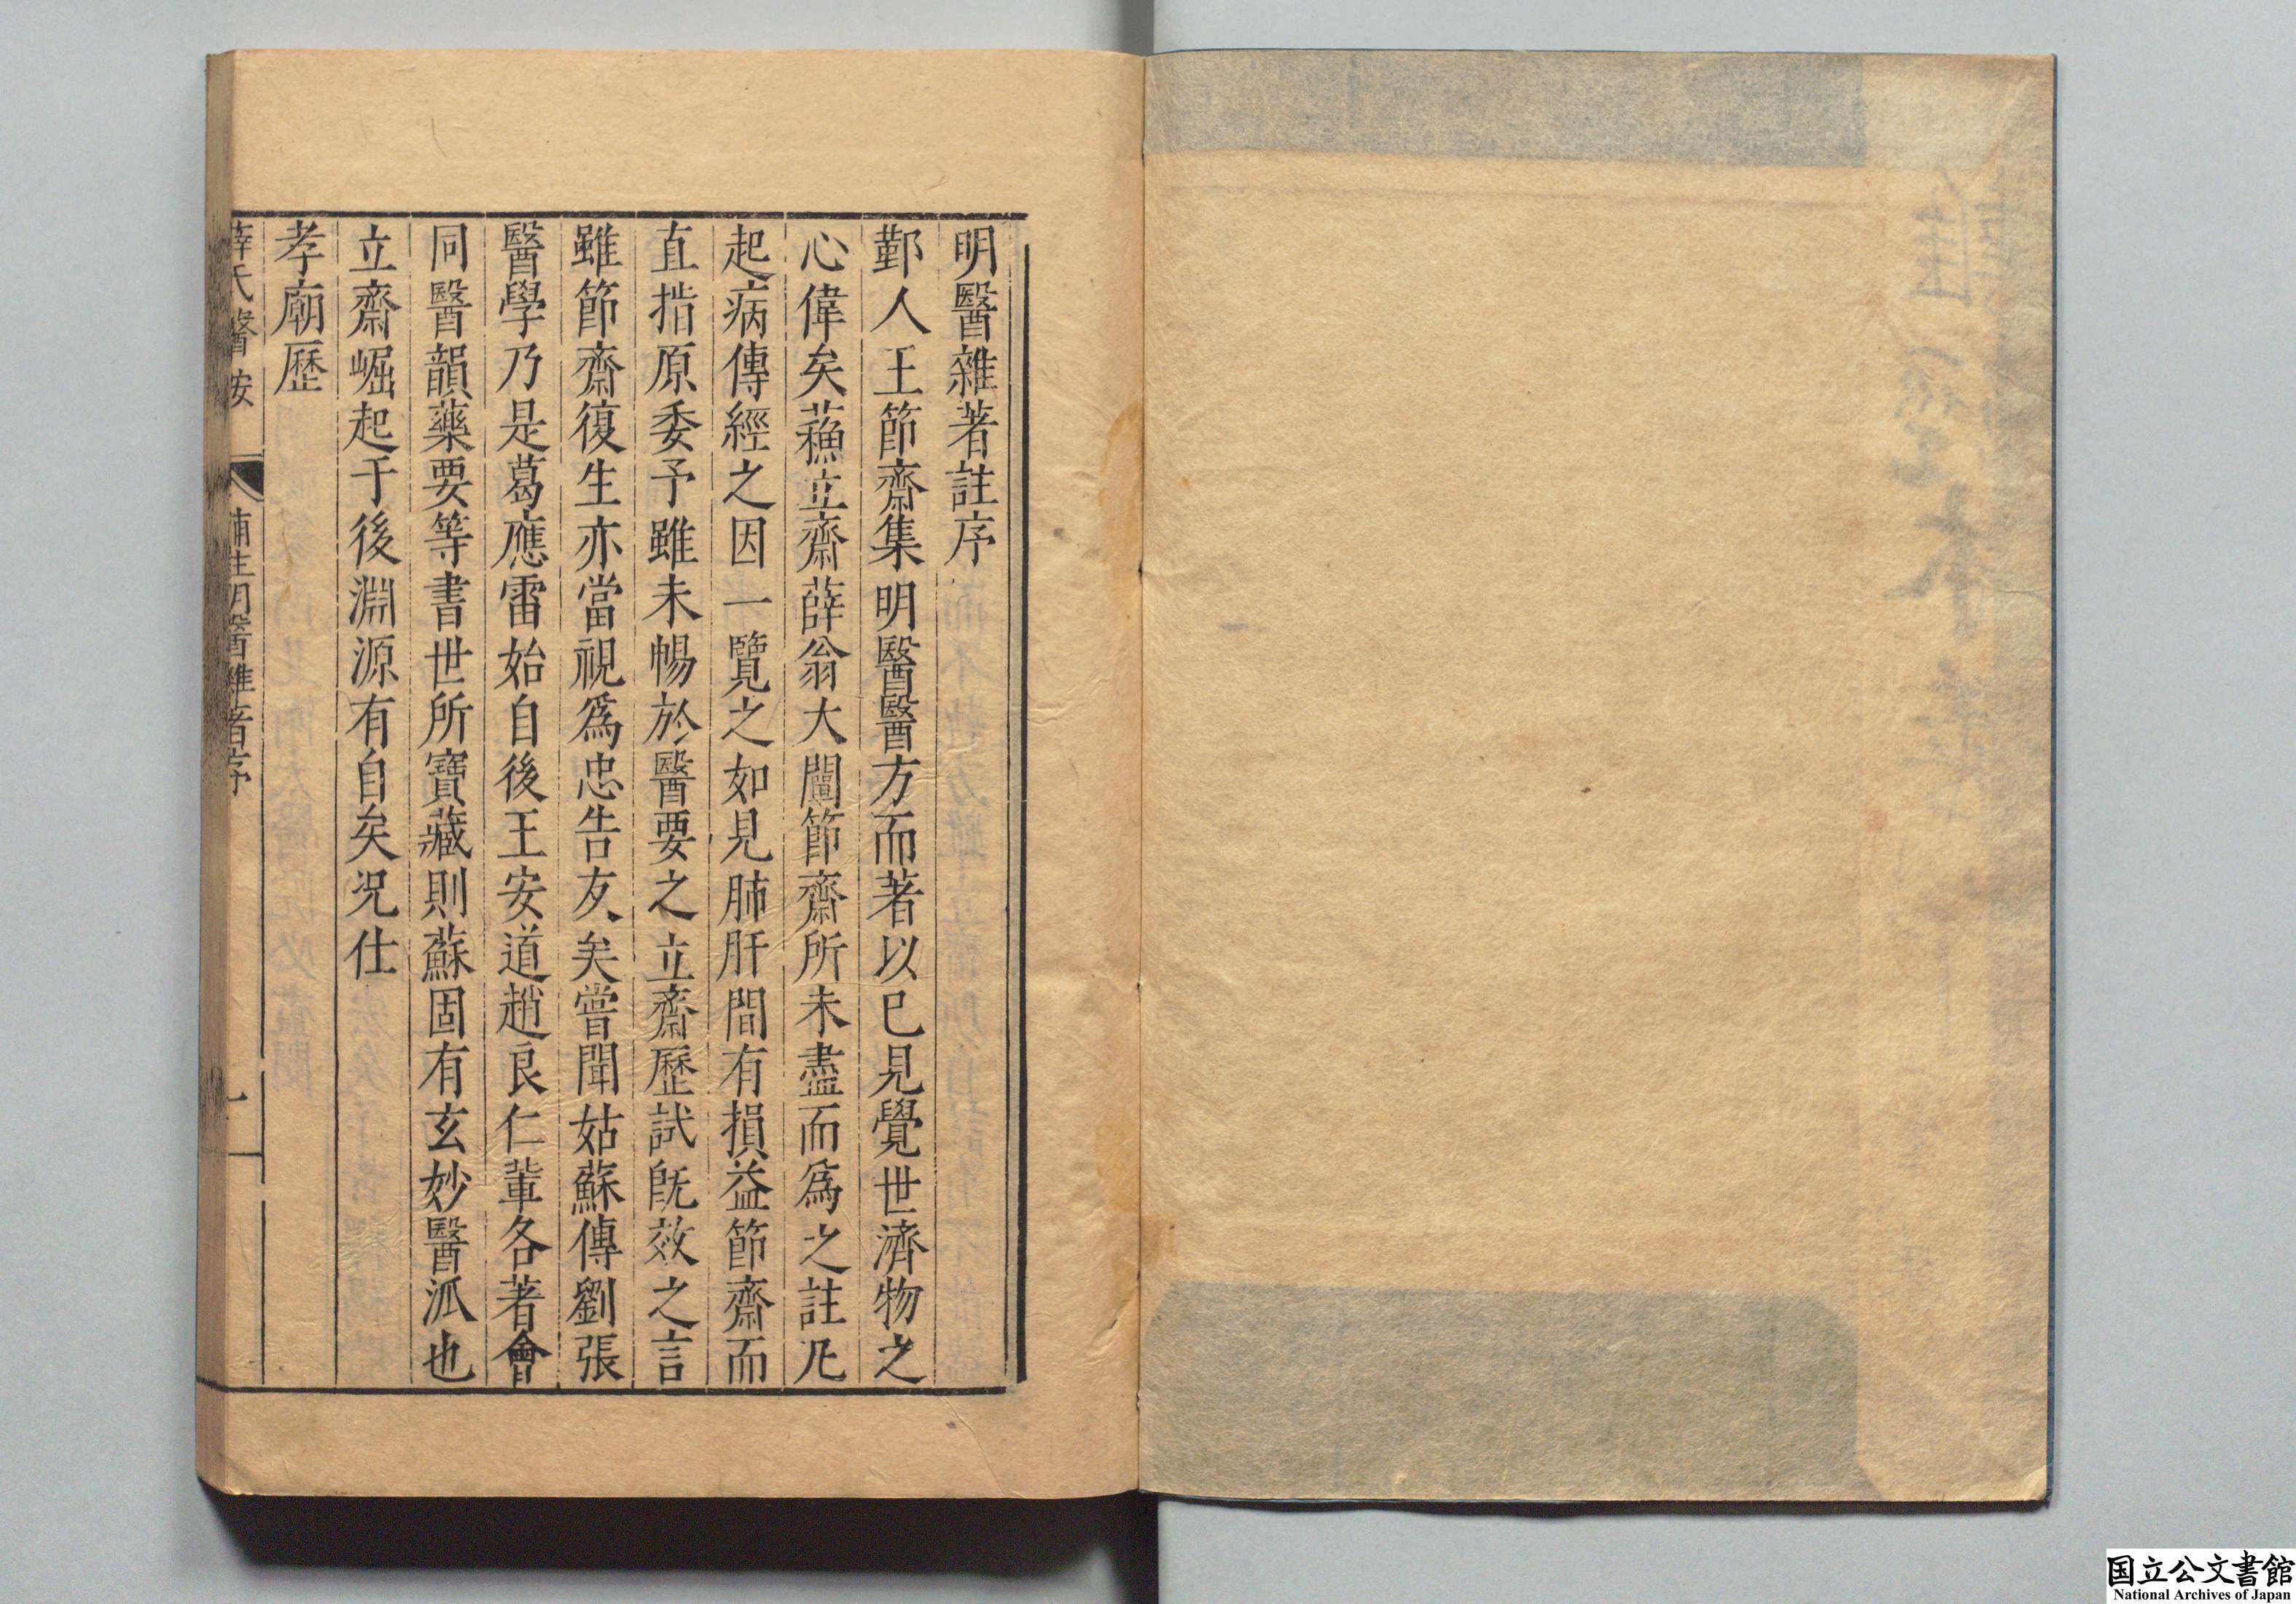 明醫雜著註序
鄞人王節齋集明醫醫方而著以已見覺世濟物之
心偉矣蘓立齋薛翁大闡節齋所未盡而爲之註凡
起病傳經之因一覽之如見肺肝間有損益節齋而
直指原委予雖未暢於醫要之立齋歷試旣效之言
雖節齋復生亦當視爲忠告友矣嘗聞姑蘇傳劉張
醫學乃是葛應雷始自後王安道趙良仁輩各著會
同醫韻藥要等書世所寶藏則蘇固有玄妙醫派也
立齋崛起于後淵源有自矣况仕
孝廟歷
薛氏醫按
補註明醫雜著序
一
国立公文書館
National Archives of Japan